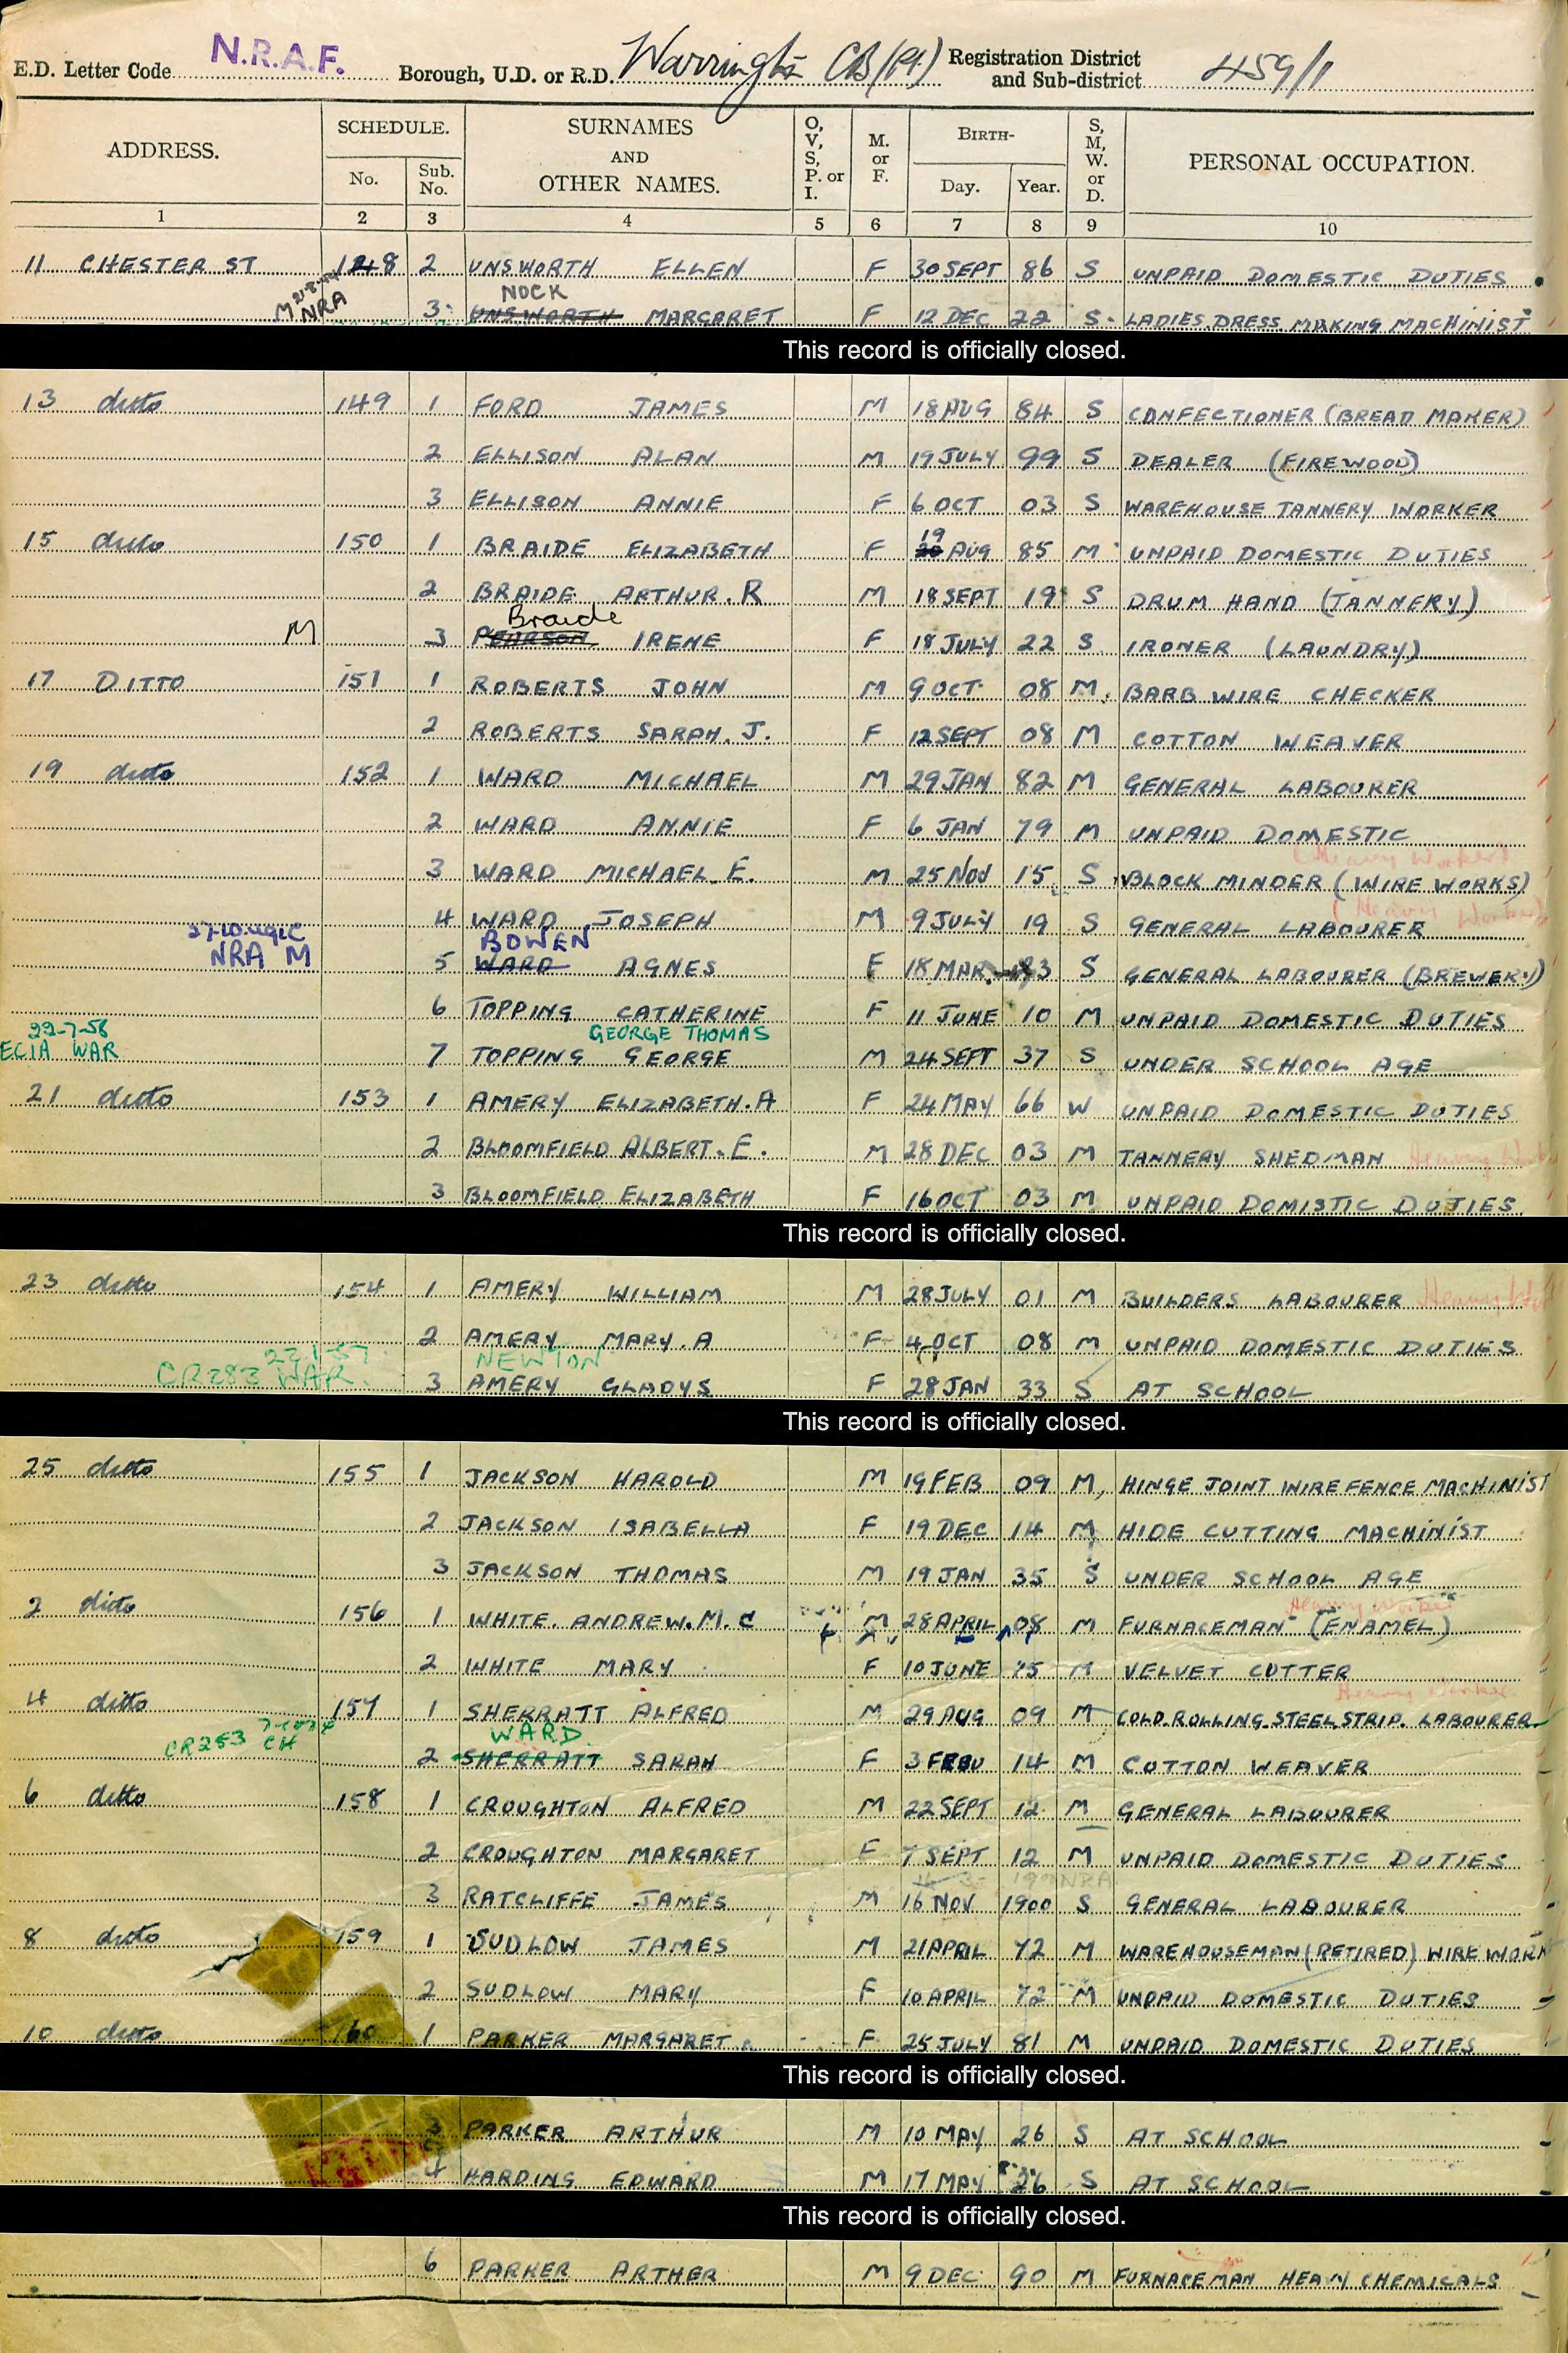 E.D. Letter Code N.R.A.F. Borough, U.D. or R.D. Warrington CB (Pt.) Registration District and Sub-district 459/1
ADDRESS. SCHEDULE. No. Sub. No. SURNAMES AND OTHER NAMES. O, V, S, P. or I. M. or F. BIRTH- Day. Year. S, M, W. or D. PERSONAL OCCUPATION.
1 2 3 4 5 6 7 8 9 10
11 CHESTER ST 148 2 UNSWORTH ELLEN F 30 SEPT 86 S UNPAID DOMESTIC DUTIES
M NRA NOCK
3 UNSWORTH MARGARET F 12 DEC 22 S LADIES DRESS MAKING MACHINIST
This record is officially closed.
13 ditto 149 1 FORD JAMES M 18 AUG 84 S CONFECTIONER (BREAD MAKER)
2 ELLISON ALAN M 19 JULY 99 S DEALER (FIREWOOD)
3 ELLISON ANNIE F 6 OCT 03 S WAREHOUSE TANNERY WORKER
15 ditto 150 1 BRAIDE ELIZABETH F 19 AUG 85 M UNPAID DOMESTIC DUTIES
2 BRAIDE ARTHUR. R M 18 SEPT 19 S DRUM HAND (TANNERY)
Braide
M 3 PEARSON IRENE F 18 JULY 22 S IRONER (LAUNDRY)
17 DITTO 151 1 ROBERTS JOHN M 9 OCT 08 M. BARB WIRE CHECKER
2 ROBERTS SARAH. J. F 12 SEPT 08 M COTTON WEAVER
19 ditto 152 1 WARD MICHAEL M 29 JAN 82 M GENERAL LABOURER
2 WARD ANNIE F 6 JAN 79 M UNPAID DOMESTIC
(Heavy Worker)
3 WARD MICHAEL. E. M 25 NOV 15 S BLOCK MINDER (WIRE WORKS)
(Heavy Worker)
4 WARD JOSEPH M 9 JULY 19 S GENERAL LABOURER
BOWEN
NRA M 5 WARD AGNES F 18 MAR S GENERAL LABOURER (BREWERY)
6 TOPPING CATHERINE F 11 JUNE 10 M UNPAID DOMESTIC DUTIES
22-7-56 GEORGE THOMAS
ECIA WAR 7 TOPPING GEORGE M 24 SEPT 37 S UNDER SCHOOL AGE
21 ditto 153 1 AMERY ELIZABETH. A F 24 MAY 66 W UNPAID DOMESTIC DUTIES
2 BLOOMFIELD ALBERT. E. M 28 DEC 03 M TANNERY SHEDMAN Heavy
3 BLOOMFIELD ELIZABETH F 16 OCT 03 M UNPAID DOMISTIC DUTIES
This record is officially closed.
23 ditto 154 1 AMERY WILLIAM M 28 JULY 01 M BUILDERS LABOURER Heavy
2 AMERY MARY. A F 4 OCT 08 M UNPAID DOMESTIC DUTIES
NEWTON
CR283 WAR 3 AMERY GLADYS F 28 JAN 33 S AT SCHOOL
This record is officially closed.
25 ditto 155 1 JACKSON HAROLD M 19 FEB 09 M, HINGE JOINT WIRE FENCE MACHINIST
2 JACKSON ISABELLA F 19 DEC 14 M HIDE CUTTING MACHINIST
3 JACKSON THOMAS M 19 JAN 35 S UNDER SCHOOL AGE
Heavy Worker
2 ditto 156 1 WHITE. ANDREW. M. C M 28 APRIL 08 M FURNACEMAN (ENAMEL)
2 WHITE MARY F 10 JUNE 15 M VELVET CUTTER
Heavy Worker
4 ditto 157 1 SHERRATT ALFRED M 29 AUG 09 M COLD ROLLING STEEL STRIP. LABOURER
WARD
CR253 CH 2 SHERRATT SARAH F 3 FEBU 14 M COTTON WEAVER
6 ditto 158 1 CROUGHTON ALFRED M 22 SEPT 12 M GENERAL LABOURER
2 CROUGHTON MARGARET F 7 SEPT 12 M UNPAID DOMESTIC DUTIES
3 RATCLIFFE JAMES M 16 NOV 1900 S GENERAL LABOURER
8 ditto 159 1 SUDLOW JAMES M 21 APRIL 72 M WAREHOUSEMAN (RETIRED) WIRE WORK
2 SUDLOW MARY F 10 APRIL 72 M UNPAID DOMESTIC DUTIES
10 ditto 160 1 PARKER MARGARET F 25 JULY 81 M UNPAID DOMESTIC DUTIES
This record is officially closed.
3 PARKER ARTHUR M 10 MAY 26 S AT SCHOOL
4 HARDING EDWARD M 17 MAY 26 S AT SCHOOL
This record is officially closed.
6 PARKER ARTHER M 9 DEC 90 M FURNACEMAN HEAVY CHEMICALS